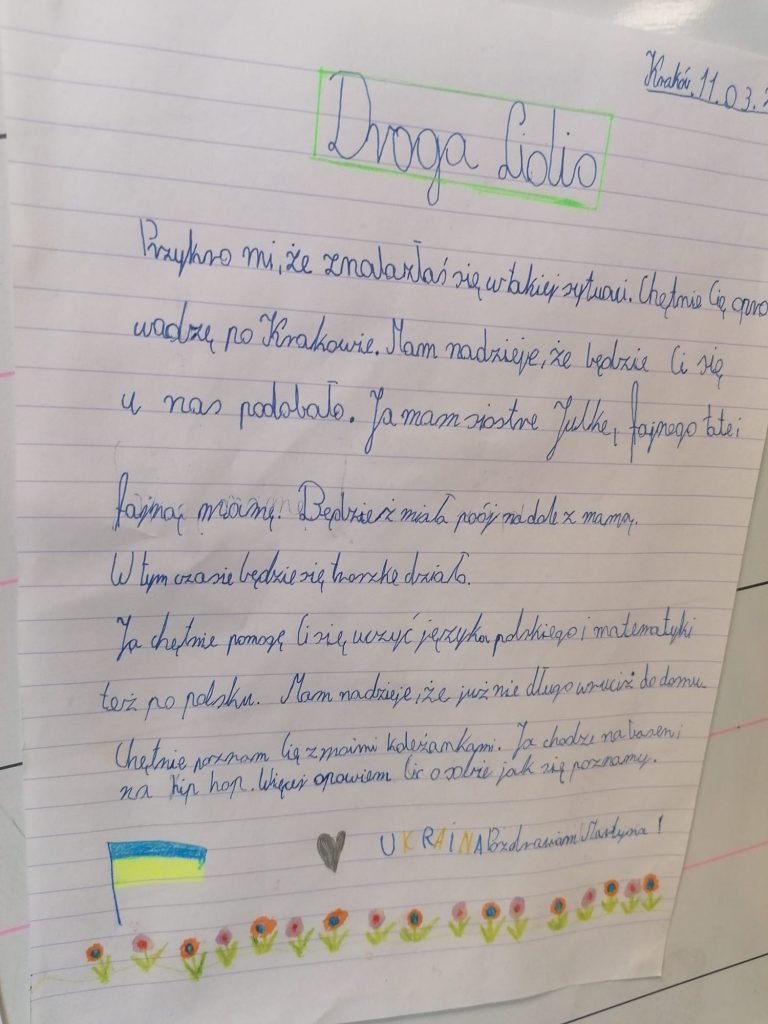 Kraków, 11.03.2
Droga Lidio
Przykro mi, że znalazłaś się w takiej sytuaci. Chętnie Cię opro
wadzę po Krakowie. Mam nadzieje, że będzie Ci się
u nas podobało. Ja mam siostre Julkę, fajnego tate i
fajną mamę. Będziesz miała pokój na dole z mamą.
W tym czasie będzie się troszkę działo.
Ja chętnie pomogę Ci się uczyć języka polskiego i matematyki
też po polsku. Mam nadzieje, że już nie długo wruciż do domu.
Chętnie poznam Cię z moimi koleżankami. Ja chodze na basen i
na hip hop. Więcej opowiem Ci o sobie jak się poznamy.
UKRAINA Pozdrawiam Martyna!